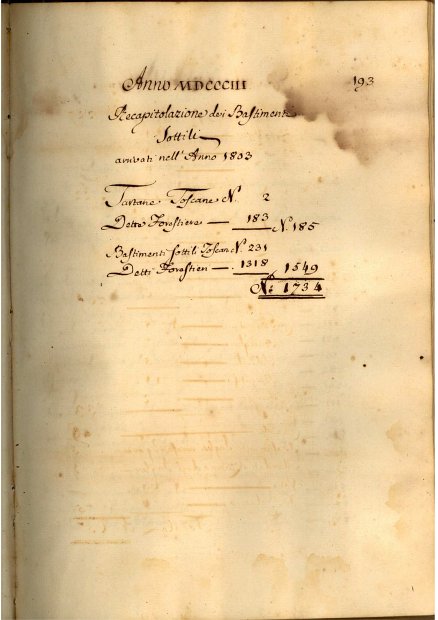 Anno MDCCCIII
193
Recapitolazione dei Bastimenti
Sottili
arrivati nell'Anno 1803
Tartane Toscane N. 2
Dette Forestiere — 183 N. 185
Bastimenti sottili Toscani N. 231
Detti Forestieri — 1318 1549
N. 1734